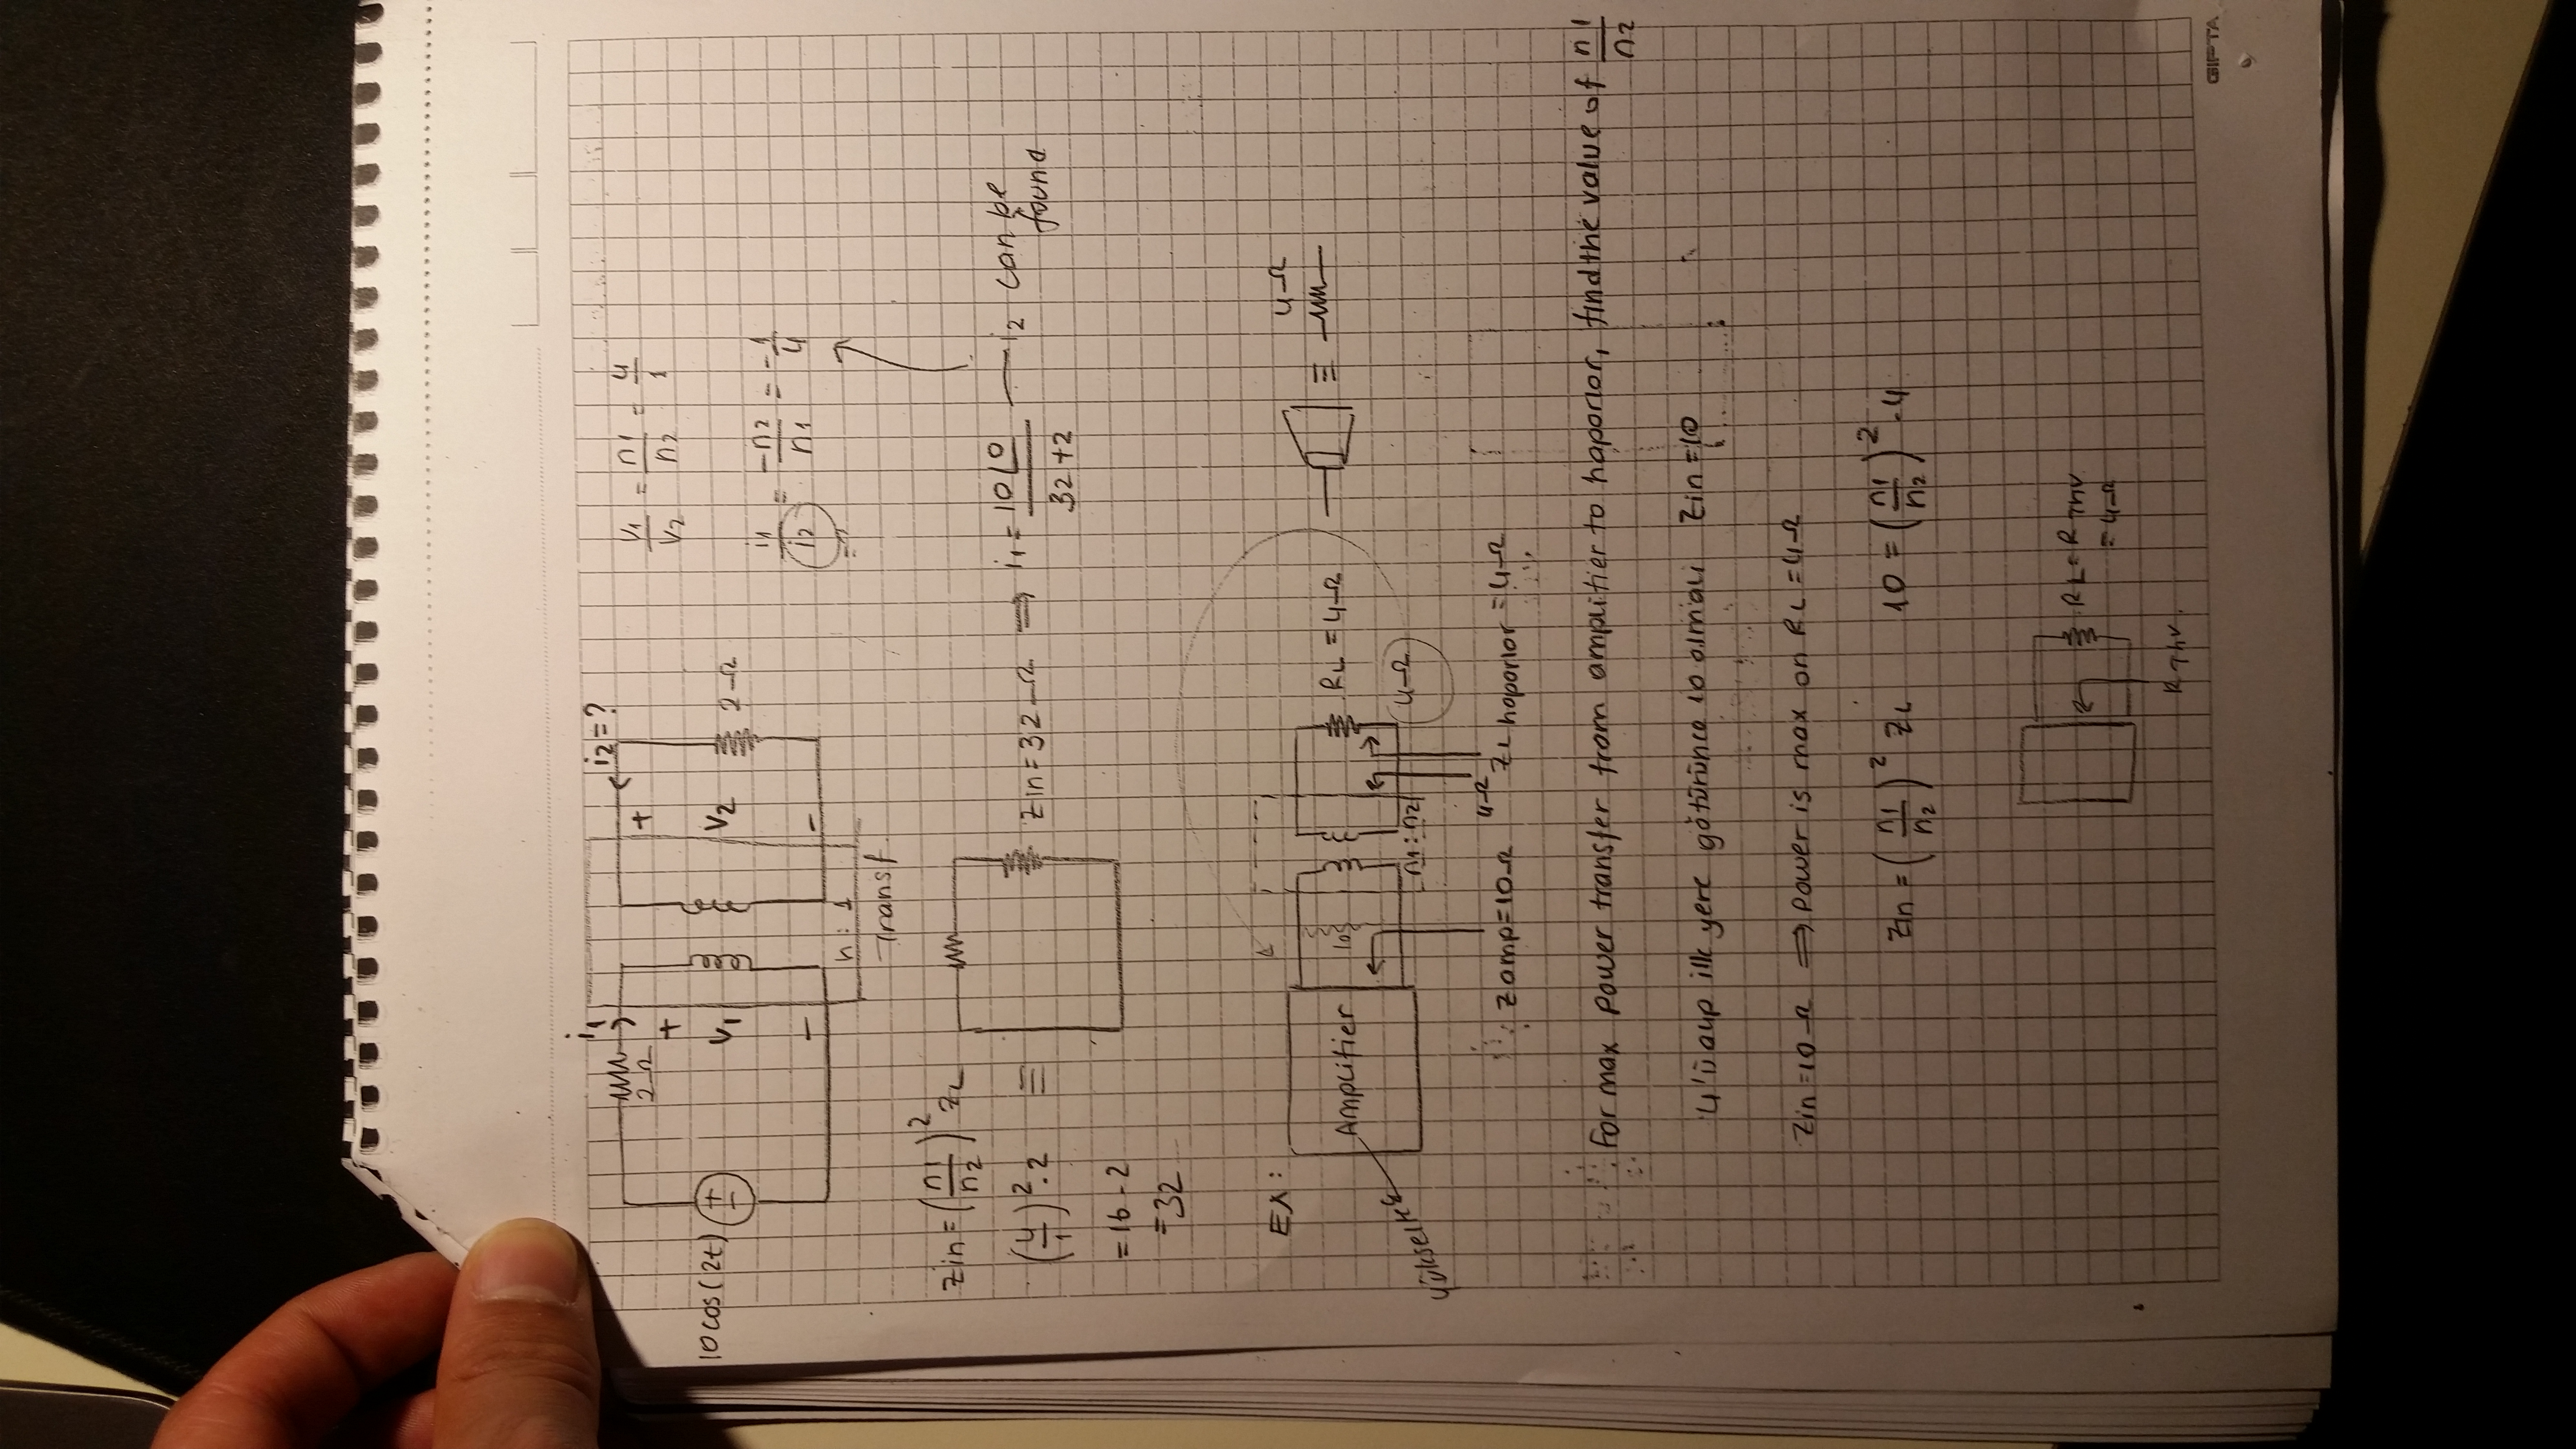 i1
i2=?
2Ω
+
+
10cos(2t)
+
-
V1
V2
2Ω
-
-
n:1
Transf.
V1/V2 = n1/n2 = 4/1
i1/i2 = -n2/n1 = -1/4
=?
Zin=(n1/n2)^2 ZL
(4/1)^2.2 ≡
=16.2
=32
Zin=32Ω ⇒ i1=10∠0/32+2 — i2 can be
found
EX:
Amplifier
10
RL=4Ω
≡
4Ω
n1:n2
4Ω
Zamp=10Ω
4Ω
ZL hoporlor=4Ω
For max power transfer from amplifier to hoporlor, find the value of n1/n2
4'ü alıp ilk yere götürünce 10 olmalı Zin=10
Zin=10Ω ⇒ power is max on RL=4Ω
Zin=(n1/n2)^2 ZL 10=(n1/n2)^2.4
RL=RThv
=4Ω
RThv.
GIPTA